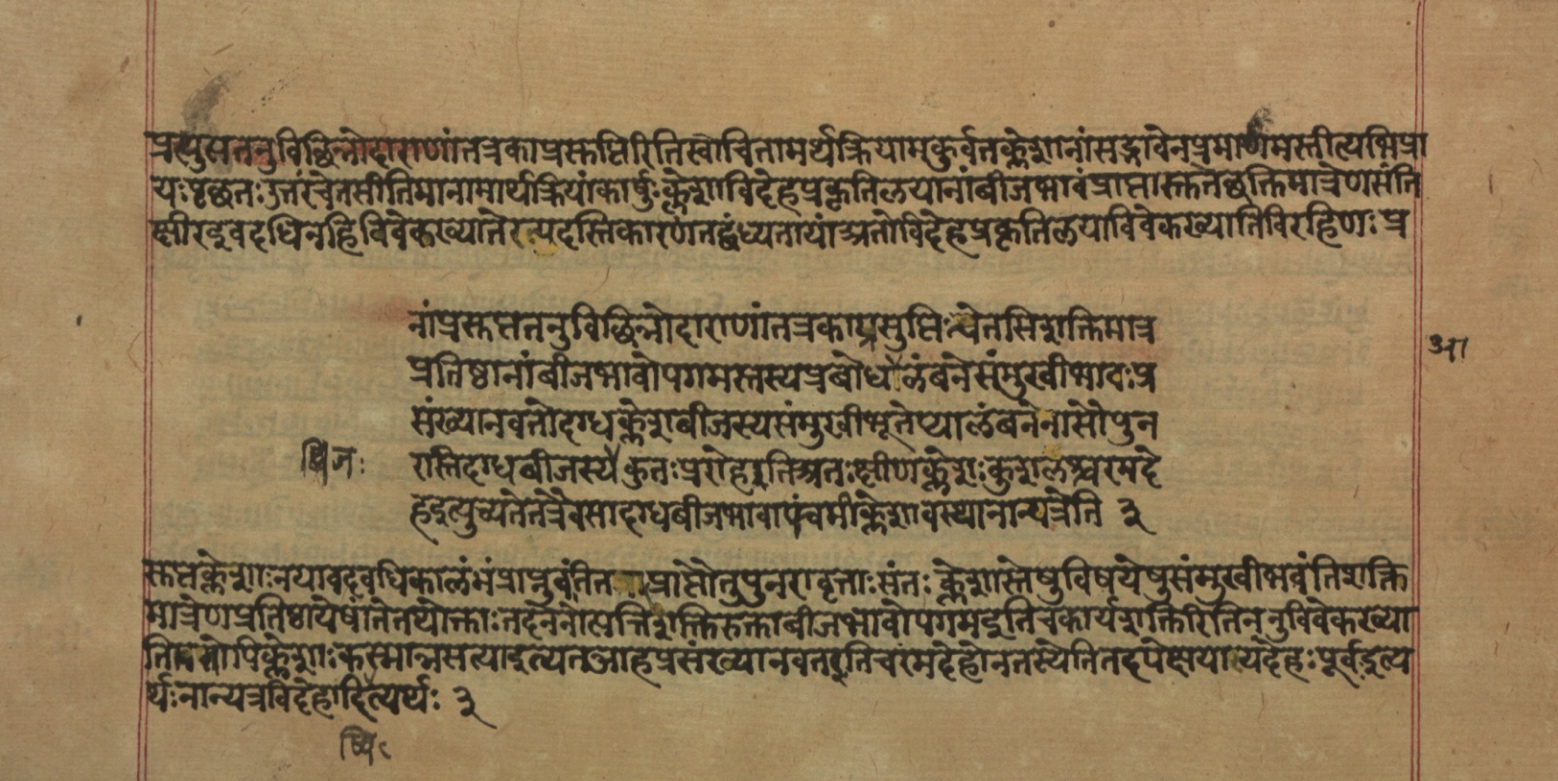 प्रत्युप्ततनुविछिन्नोदाराणांतत्रकाप्रसुप्तिरितिस्वोचितामर्थक्रियामकुर्वतक्लेशानांसद्भावेनप्रमाणमस्तीत्यभिप्रा
यःपृछतःउत्तंरचेतसीतिमानामार्थक्रियांकार्षुःक्लेशाविदेहप्रकृतिलयानांबीजभावंप्राप्तास्तुतेछक्तिमात्रेणसंति
क्षीरइवदधिनहिविवेकख्यातेरन्यदस्तिकारणंतद्वंध्यतायांअतोविदेहप्रकृतिलयाविवेकख्यातिविरहिणःप्र
नांप्रसुप्ततनुविछिन्नोदाराणांतत्रकाप्रसुप्तिःचेतसिशक्तिमात्र
प्रतिष्ठानांबीजभावोपगमस्तस्यप्रबोधालंबनेसंमुखीभावःप्र
संख्यानवतोदग्धक्लेशबीजस्यसंमुखीभूतेप्यालंबनेनासोपुन
रास्तिदग्धबीजस्यकुतःप्ररोहइतिअतःक्षीणक्लेशःकुशलश्चरमदे
हइत्युच्यतेतत्रैवसादग्धबीजभावापंचमीक्लेशावस्थानान्यत्रेति ३
सुप्तक्लेशाःनयावदवधिकालंभंप्राप्नुवंतितप्राप्तौतुपुनरावृत्ताःसंतःक्लेशास्तेषुविषयेषुसंमुखीभवंतिशक्ति
मात्रेणप्रतिष्ठायेषांतेतथोक्ताःतदनेनोत्पत्तिशक्तिरुक्ताबीजभावोपगमइतिचकार्यशक्तिरितिननुविवेकख्या
तिमतोपिक्लेशाःकस्मान्नसत्याइत्यतआहप्रसंख्यानवतइतिचरमदेहोनतस्येतितदपेक्षयात्यदेहःपूर्वइत्य
र्थःनान्यत्रविदेहादित्यर्थः ३